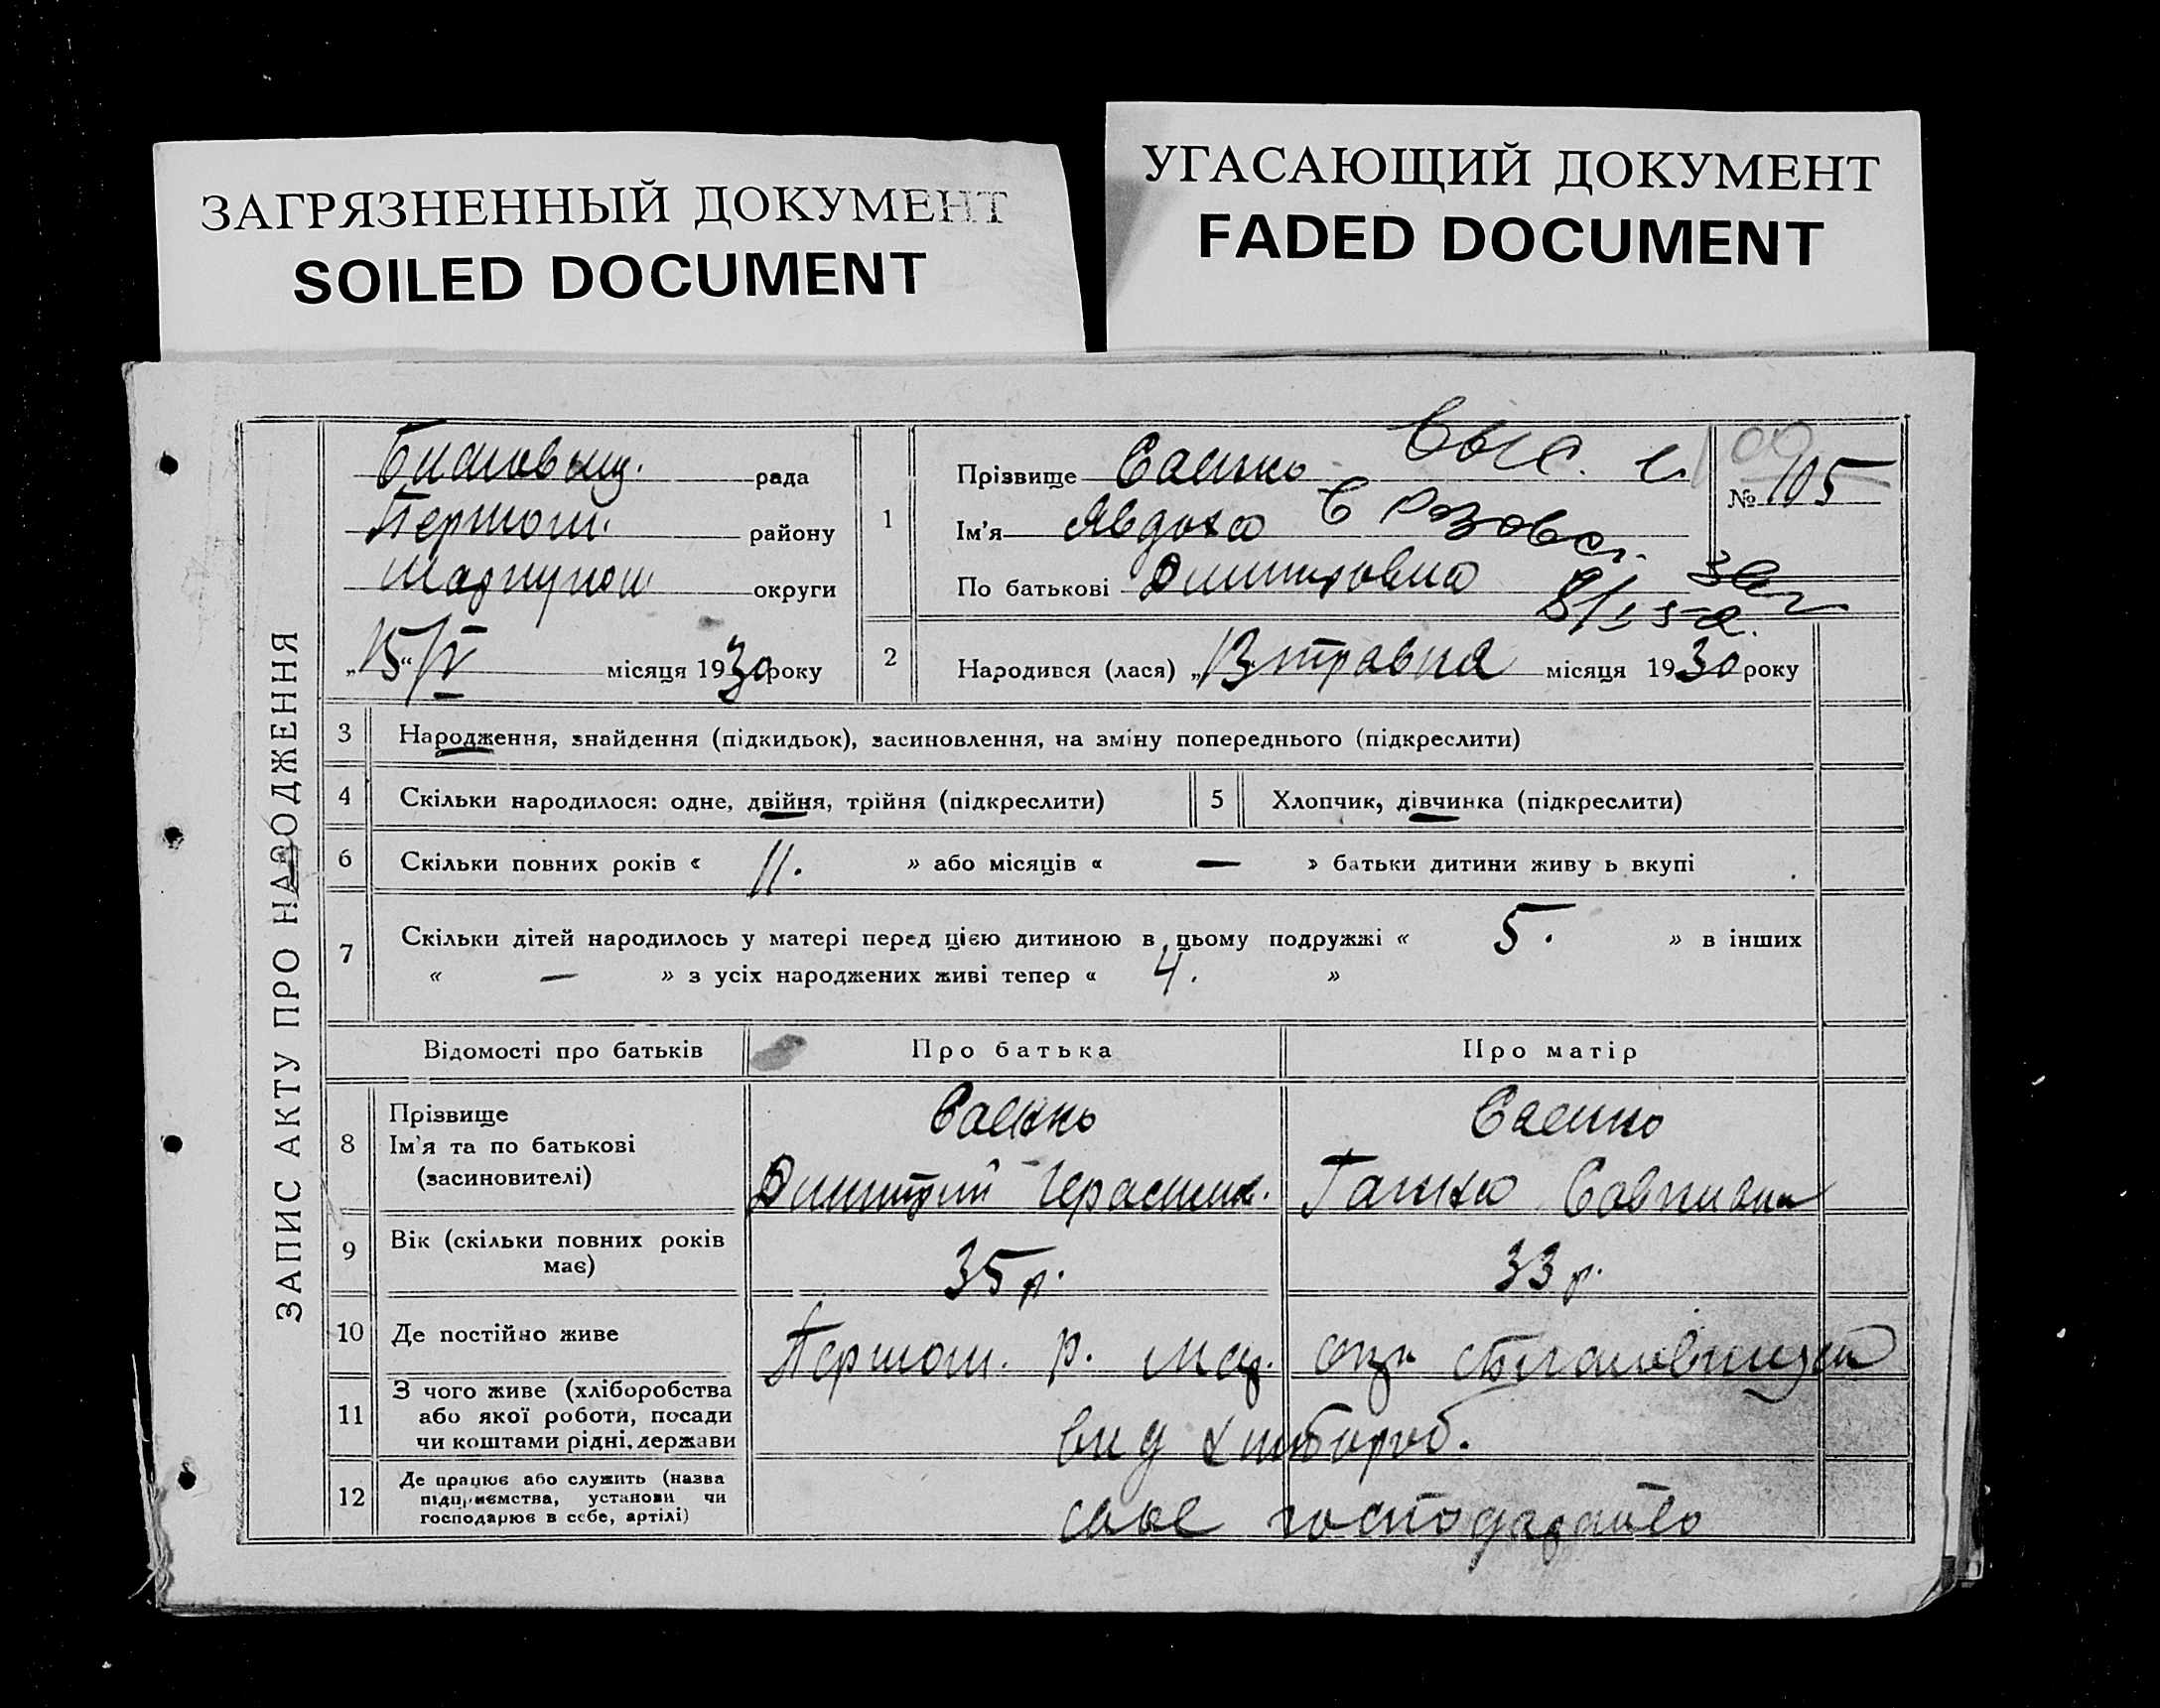 ЗАГРЯЗНЕННЫЙ ДОКУМЕНТ
SOILED DOCUMENT
УГАСАЮЩИЙ ДОКУМЕНТ
FADED DOCUMENT
ЗАПИС АКТУ ПРО НАРОДЖЕННЯ
рада
Першот. району
округи
„15“/V місяця 1930 року
1
Прізвище Саенко
Ім'я Явдоха
По батькові Дмитровна
№ 105
2 Народився (лася) „13 травня місяця 1930 року
3 Народження, знайдення (підкидьок), засиновлення, на зміну попереднього (підкреслити)
4 Скільки народилося: одне, двійня, трійня (підкреслити)
5 Хлопчик, дівчинка (підкреслити)
6 Скільки повних років « 11. » або місяців « — » батьки дитини живу ь вкупі
7 Скільки дітей народилось у матері перед цією дитиною в цьому подружжі « 5. » в інших
« — » з усіх народжених живі тепер « 4. »
Відомості про батьків Про батька Про матір
8 Прізвище Саенко Саенко
Ім'я та по батькові
(засиновителі) Дмитрий Герасим. Ганна
9 Вік (скільки повних років
має) 35 р. 33 р.
10 Де постійно живе Першот. р. Мар.
11 З чого живе (хліборобства
або якої роботи, посади
чи коштами рідні, держави
від хлібороб.
12 Де працює або служить (назва
підприємства, установи чи
господарює в себе, артілі)
свое господарство